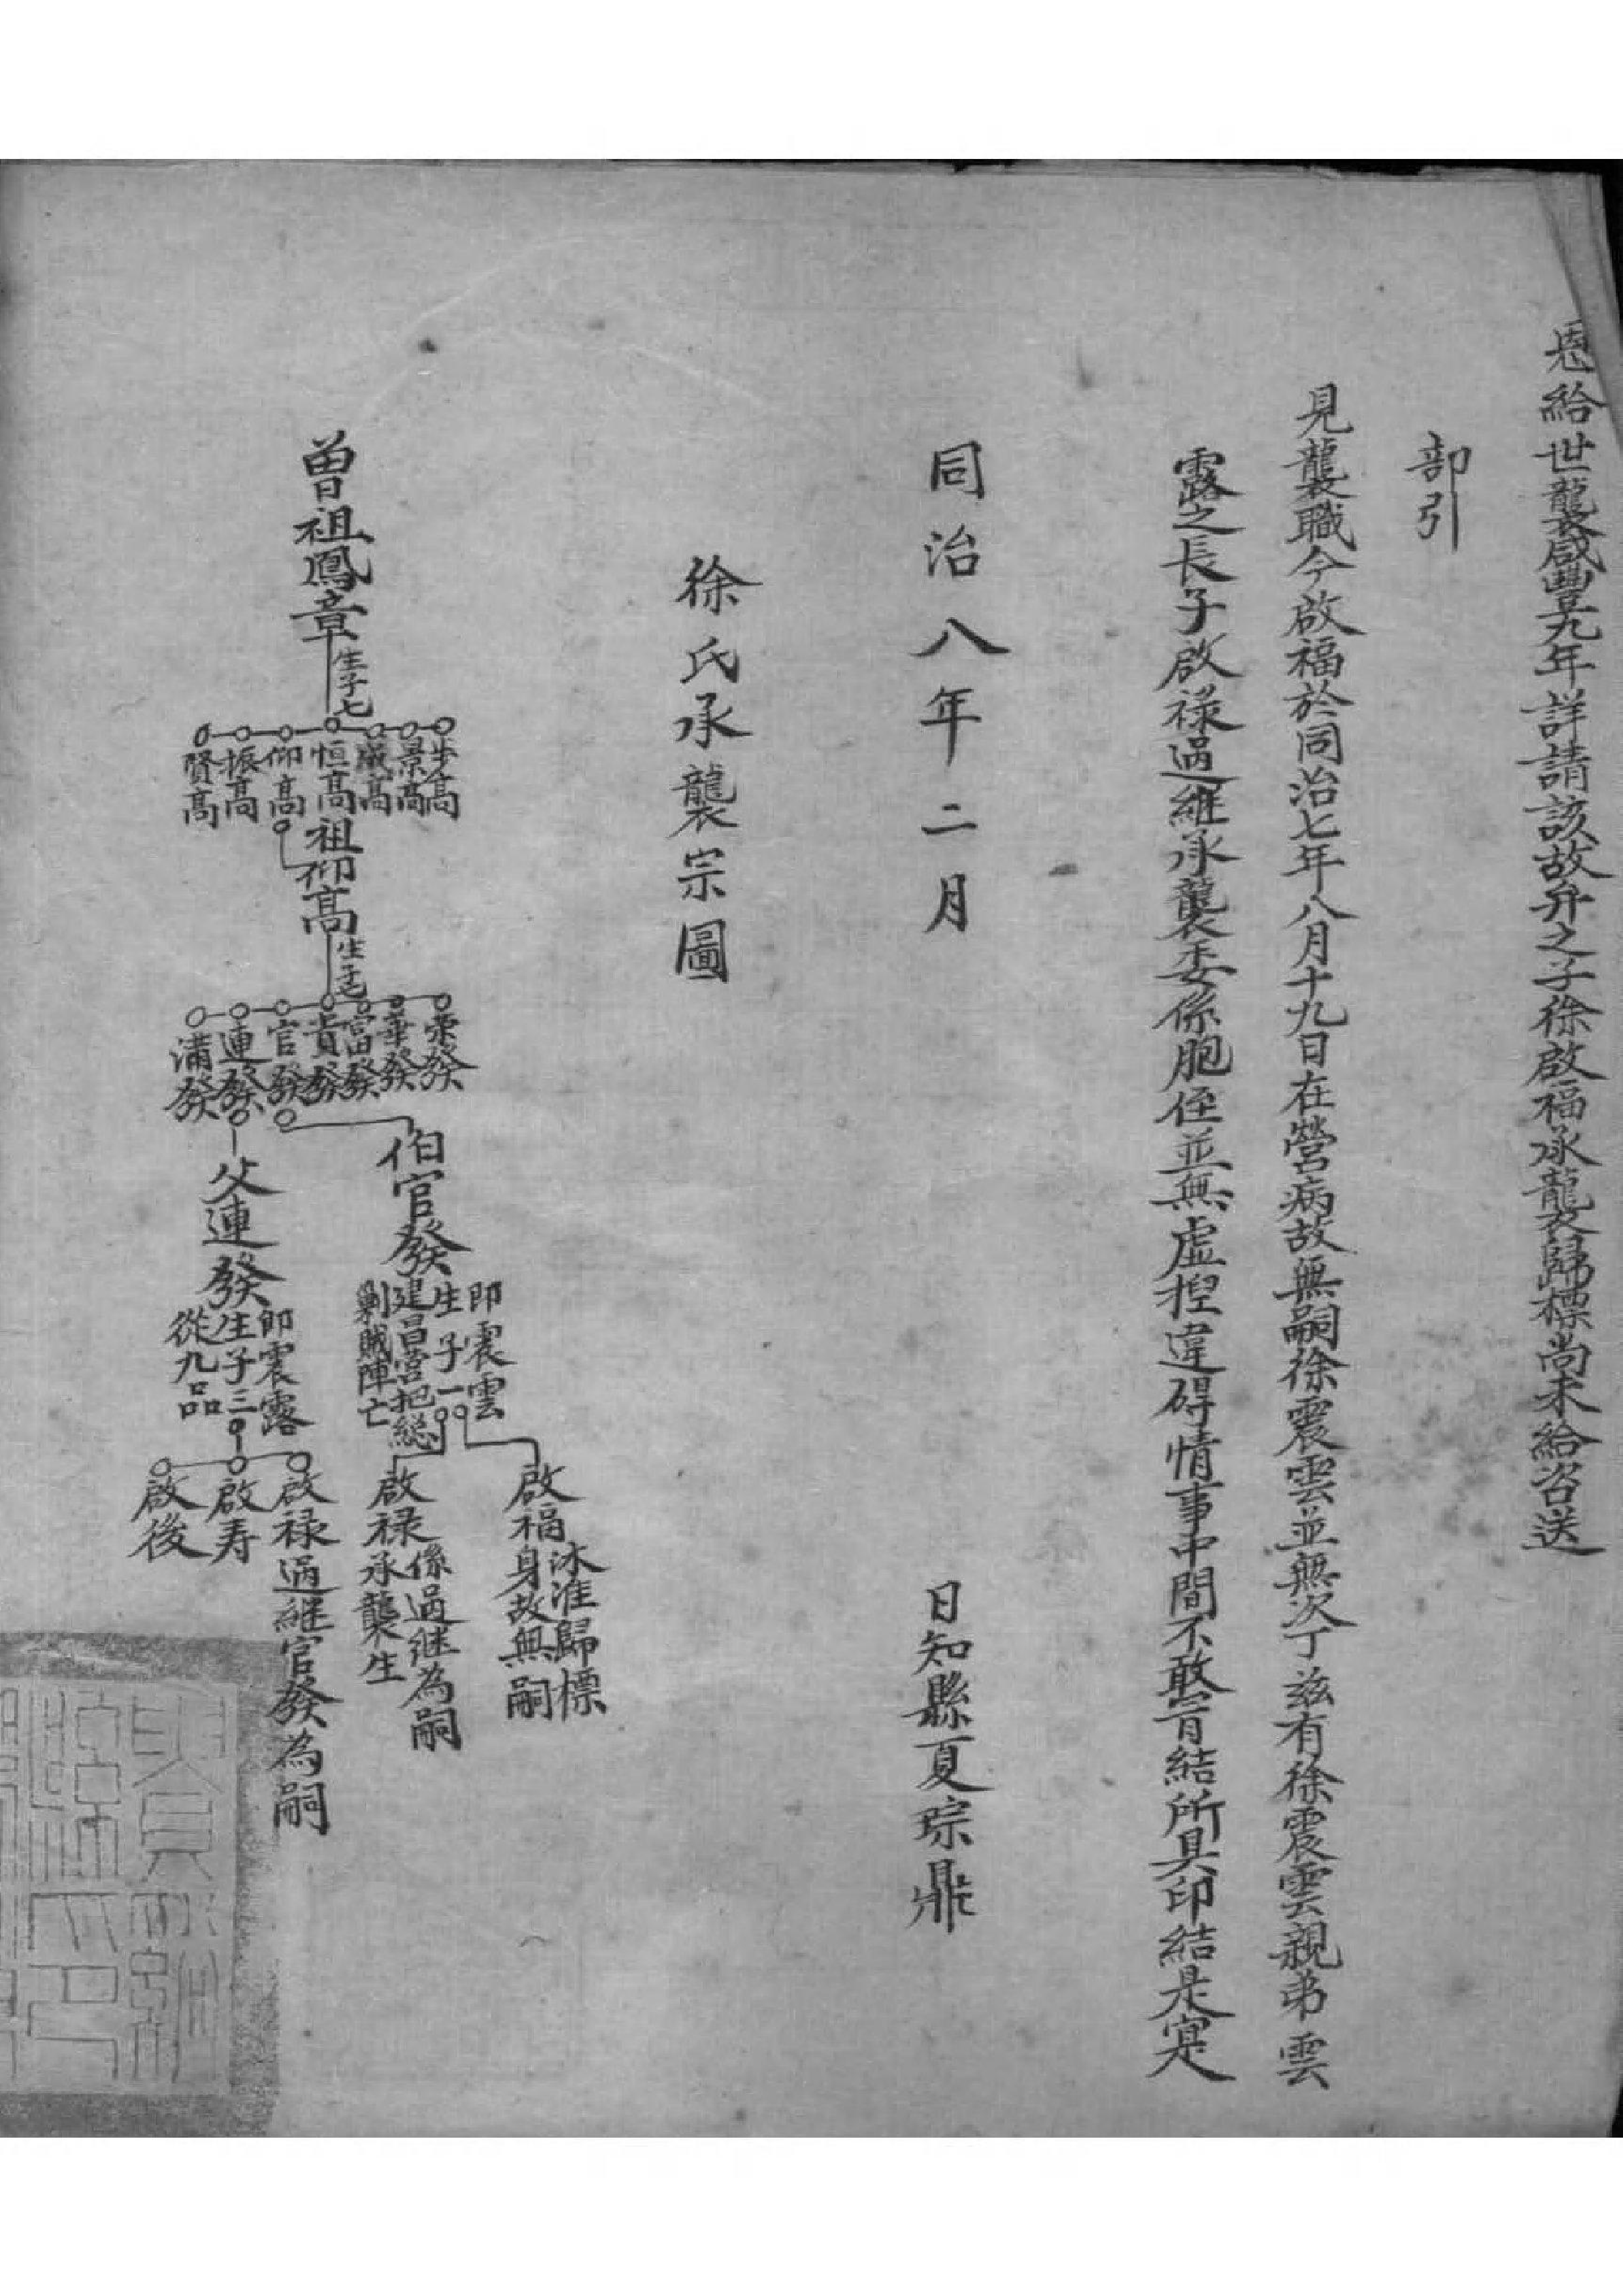 恩給世襲咸豐九年詳請該故弁之子徐啟福承襲歸標尚未給咨送
部引
見襲職今啟福於同治七年八月十九日在營病故無嗣徐震雲並無次丁兹有徐震雲親弟雲
露之長子啟禄過継承襲委係胞侄並無虛捏違碍情事中間不敢冒結所具印結是寔
同治八年二月
日知縣夏琮鼎
徐氏承襲宗圖
曾祖鳳章
生子七
步高
景高
威高
恒高
仰高
振高
賢高
祖仰高
生子七
榮發
華發
富發
貴發
官發
連發
溝發
伯官發
即震雲
生子一
建昌營把総
剿賊陣亡
父連發
即震露
生子三
從九品
啟福
沐准歸標
身故無嗣
啟禄
係過継為嗣
承襲生
啟禄過継官發為嗣
啟寿
啟後